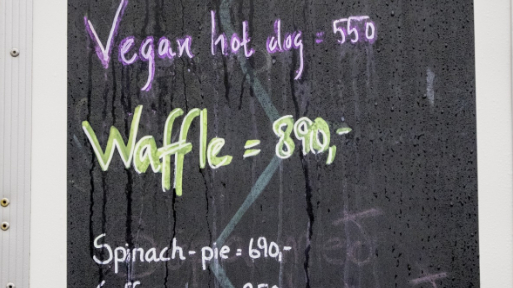 Vegan hot dog = 550
Waffle = 890,-
Spinach-pie = 690,-